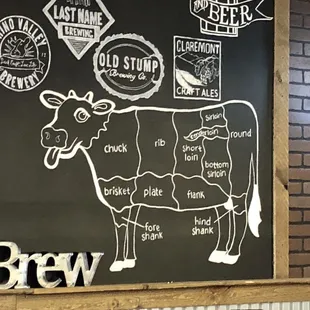 AND
BEER
LAST NAME
BREWING
CHINO VALLEY
BREWERY
OLD STUMP
Brewing Co.
CLAREMONT
CRAFT ALES
chuck
rib
sirloin
tenderloin
short
loin
bottom
sirloin
round
brisket
plate
flank
fore
shank
hind
shank
Brew